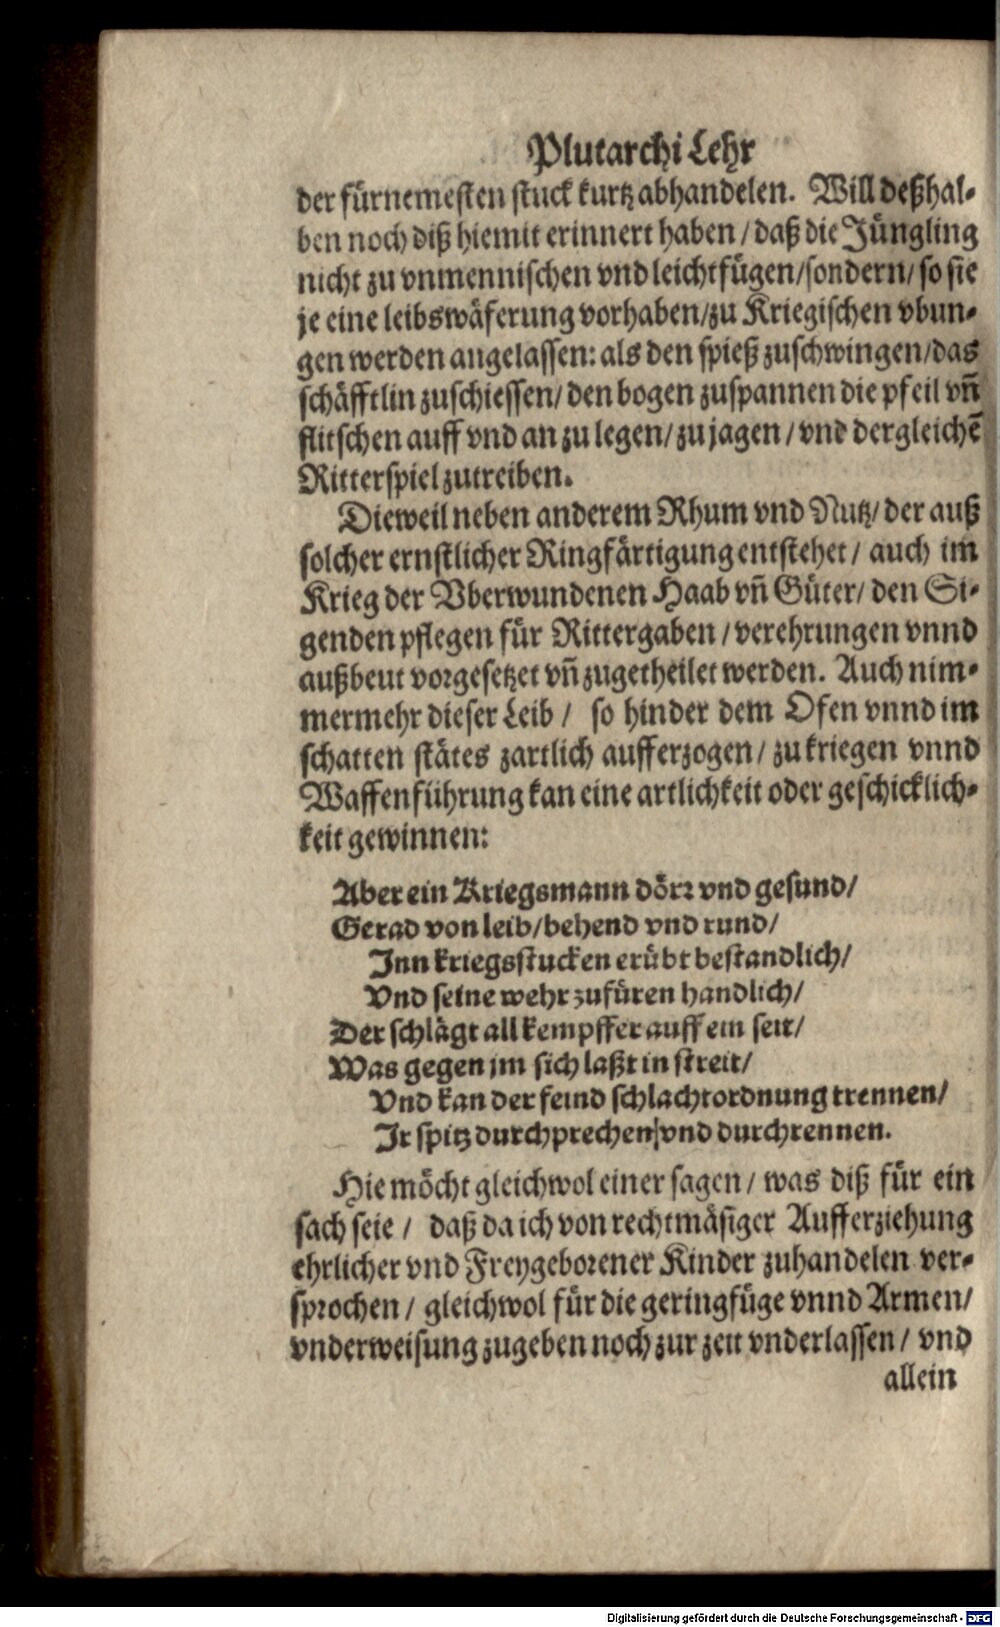 Plutarchi Lehr
der fürnemesten stuck kurtz abhandelen. Will deßhal-
ben noch diß hiemit erinnert haben / daß die Jüngling
nicht zu vnmennischen vnd leichtfügen/sondern/ so sie
je eine leibswäferung vorhaben/zu Kriegischen vbun-
gen werden angelassen: als den spieß zuschwingen/das
schäfftlin zuschiessen/ den bogen zuspannen die pfeil vñ
flitschen auff vnd an zu legen/ zu jagen / vnd dergleichẽ
Ritterspiel zutreiben.
Dieweil neben anderem Rhum vnd Nutz/ der auß
solcher ernstlicher Ringfärtigung entstehet / auch im
Krieg der Vberwundenen Haab vñ Güter/ den Si-
genden pflegen für Rittergaben / verehrungen vnnd
außbeut vorgesetzet vñ zugetheilet werden. Auch nim-
mermehr dieser Leib / so hinder dem Ofen vnnd im
schatten stätes zartlich aufferzogen / zu kriegen vnnd
Waffenführung kan eine artlichkeit oder geschicklich-
keit gewinnen:
Aber ein Kriegsmann dörr vnd gesund/
Gerad von leib/behend vnd rund/
Inn kriegsstucken erübt bestandlich/
Vnd seine wehr zufüren handlich/
Der schlägt all kempffer auff ein seit/
Was gegen jm sich laßt in streit/
Vnd kan der feind schlachtordnung trennen/
Ir spitz durchprechen/vnd durchrennen.
Hie möcht gleichwol einer sagen / was diß für ein
sach seie / daß da ich von rechtmäsiger Aufferziehung
ehrlicher vnd Freygeborener Kinder zuhandelen ver-
sprochen / gleichwol für die geringfüge vnnd Armen/
vnderweisung zugeben noch zur zeit vnderlassen / vnd
allein
Digitalisierung gefördert durch die Deutsche Forschungsgemeinschaft - DFG